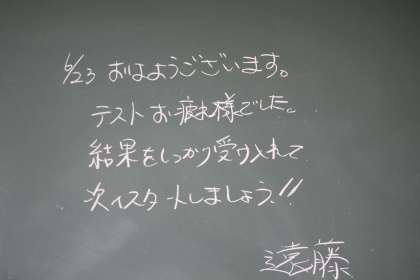 6/23 おはようございます。
テストお疲れ様でした。
結果をしっかり受け入れて
次へスタートしましょう!!
遠藤